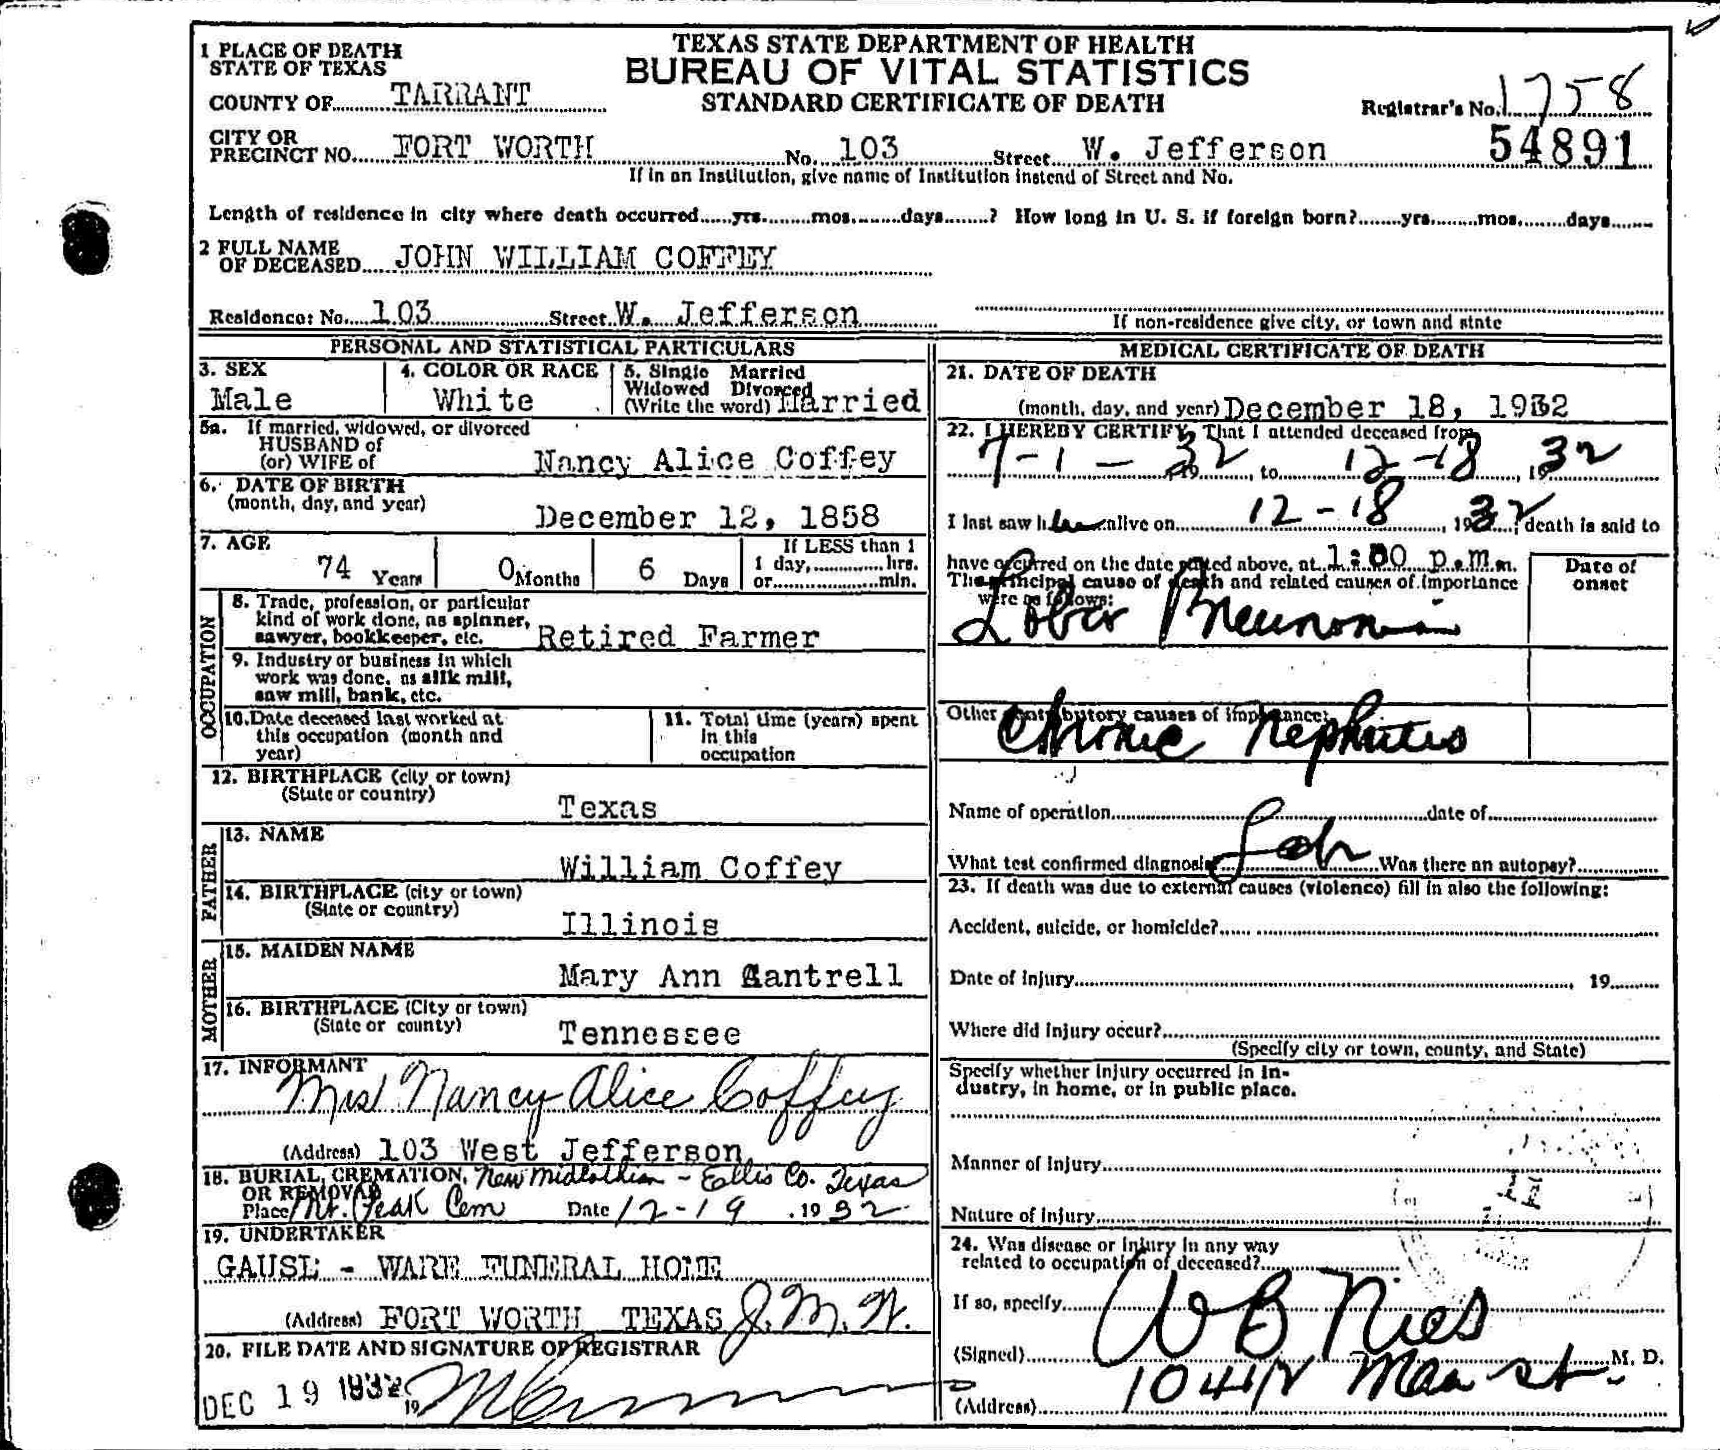 TEXAS STATE DEPARTMENT OF HEALTH
BUREAU OF VITAL STATISTICS
STANDARD CERTIFICATE OF DEATH
1 PLACE OF DEATH
STATE OF TEXAS
COUNTY OF TARRANT
Registrar's No. 1758
54891
CITY OR
PRECINCT NO. FORT WORTH No. 103 Street W. Jefferson
If in an Institution, give name of Institution instead of Street and No.
Length of residence in city where death occurred yrs. mos. days ? How long in U. S. if foreign born? yrs. mos. days
2 FULL NAME
OF DECEASED JOHN WILLIAM COFFEY
Residence: No. 103 Street W. Jefferson
If non-residence give city, or town and state
PERSONAL AND STATISTICAL PARTICULARS
3. SEX
Male
4. COLOR OR RACE
White
5. Single Married
Widowed Divorced
(Write the word) Married
5a. If married, widowed, or divorced
HUSBAND of
(or) WIFE of Nancy Alice Coffey
6. DATE OF BIRTH
(month, day, and year) December 12, 1858
7. AGE
74 Years 0 Months 6 Days
If LESS than 1
1 day, hrs.
or min.
OCCUPATION
8. Trade, profession, or particular
kind of work done, as spinner,
sawyer, bookkeeper, etc. Retired Farmer
9. Industry or business in which
work was done, as silk mill,
saw mill, bank, etc.
10. Date deceased last worked at
this occupation (month and
year)
11. Total time (years) spent
in this
occupation
12. BIRTHPLACE (city or town)
(State or country) Texas
FATHER
13. NAME
William Coffey
14. BIRTHPLACE (city or town)
(State or country) Illinois
MOTHER
15. MAIDEN NAME
Mary Ann Cantrell
16. BIRTHPLACE (City or town)
(State or county) Tennessee
17. INFORMANT
Mrs Nancy Alice Coffey
(Address) 103 West Jefferson
18. BURIAL, CREMATION, Near Midlothian - Ellis Co. Texas
OR REMOVAL
Place Mt. Peak Cem Date 12-19 .1932
19. UNDERTAKER
GAUSE - WARE FUNERAL HOME
(Address) FORT WORTH TEXAS J.M.W.
20. FILE DATE AND SIGNATURE OF REGISTRAR
DEC 19 1932 19
MEDICAL CERTIFICATE OF DEATH
21. DATE OF DEATH
(month, day, and year) December 18, 1932
22. I HEREBY CERTIFY, That I attended deceased from
7-1- 32, to 12-18, 1932
I last saw him alive on 12-18, 1932; death is said to
have occurred on the date stated above, at 1:00 p.m. m.
The principal cause of death and related causes of importance
were as follows:
Date of
onset
Lobar Pneumonia
Other contributory causes of importance:
Chronic Nephritis
Name of operation date of
What test confirmed diagnosis Lab Was there an autopsy?
23. If death was due to external causes (violence) fill in also the following:
Accident, suicide, or homicide?
Date of injury , 19
Where did injury occur?
(Specify city or town, county, and State)
Specify whether injury occurred in in-
dustry, in home, or in public place.
Manner of injury
Nature of injury
24. Was disease or injury in any way
related to occupation of deceased?
If so, specify
(Signed) W B Nies M. D.
(Address) 104 1/2 Main St.